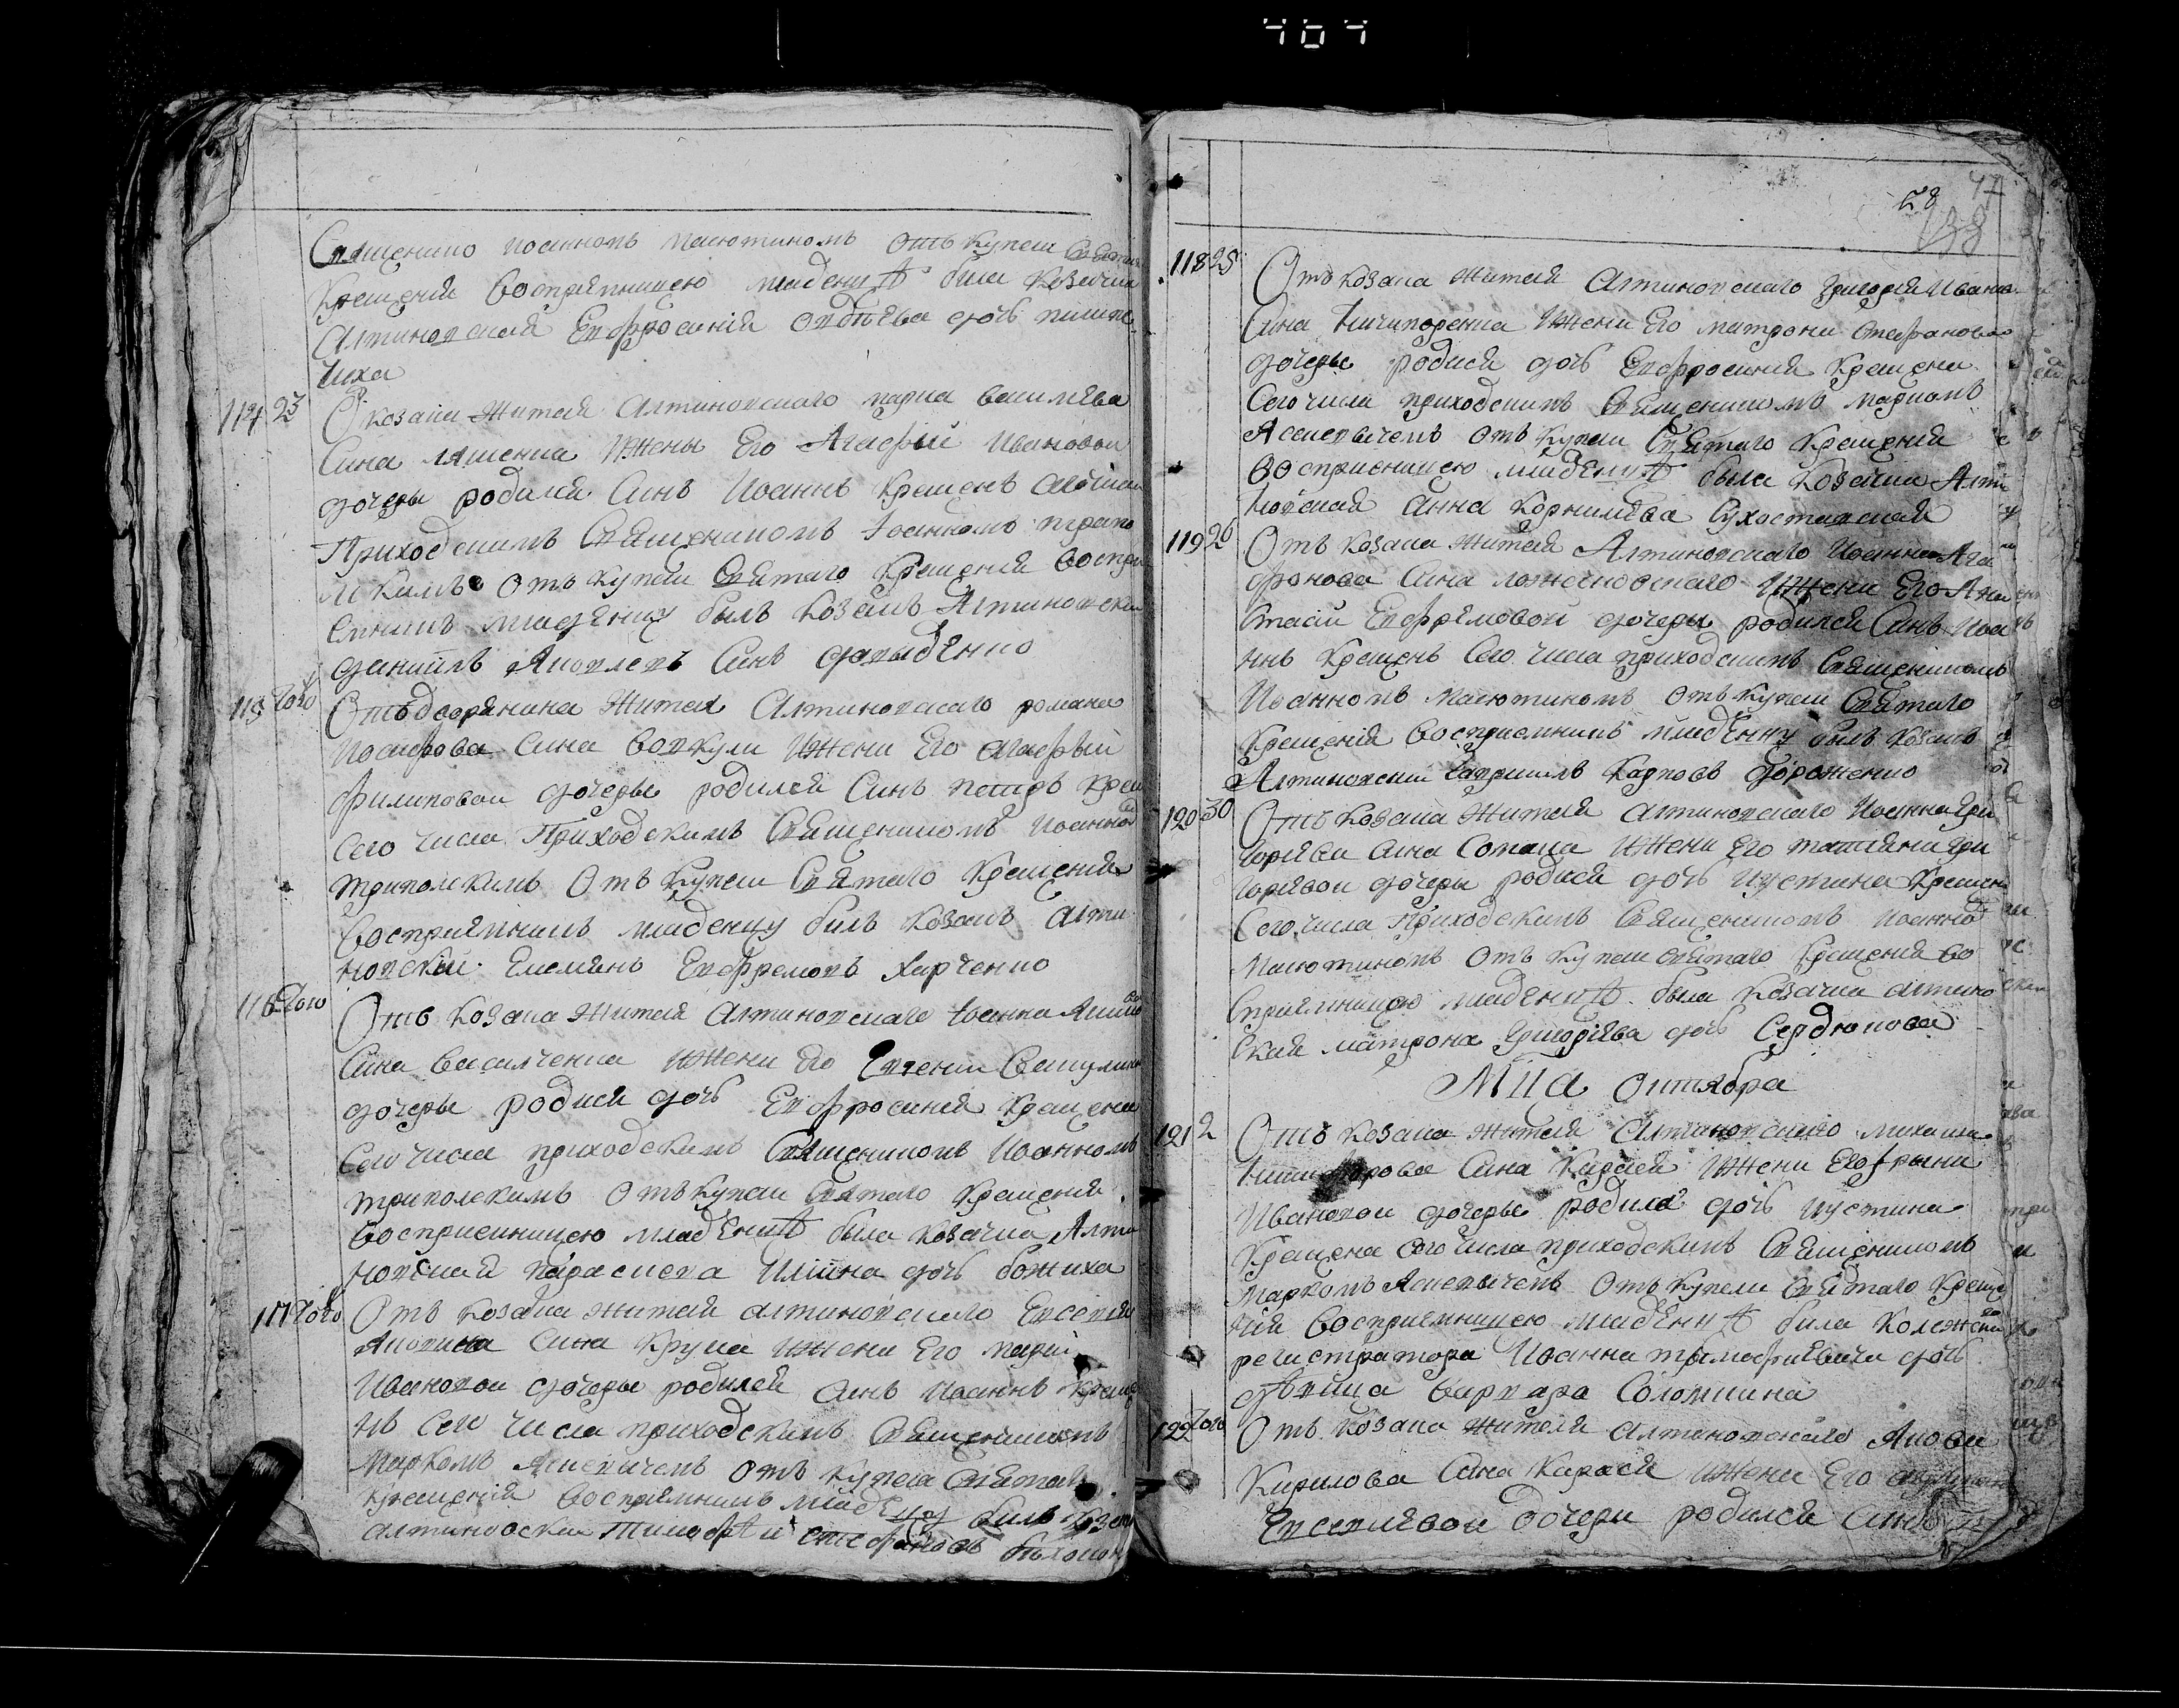 464
Священико Иоанномъ Малютиномъ отъ купели Святаго
крещенія восприемницею младенцѣ была козачка
Алтиновская Евфросинія Авдѣева дочь
чиха
114 23 От козака жителя Алтиновскаго Марка Василиева
Сина Ляшенка Ижены Его Агафіи Ивановои
дочеры родился Синъ Иоаннъ крещенъ
Приходскимъ Священикомъ Иоанномъ Трипо
лскимъ отъ купели Святаго крещенія воспри
емникъ младенцу былъ козакъ Алтиновски
Даниилъ Яковлевъ Синъ Давиденко
115 Того Отъ дворянина жителя Алтиновскаго Романа
Иосифова Сина Вовкули Ижени Его Агафіи
Филиповои дочеры родился Синъ Петръ крещ
Сего числа Приходскимъ Священикомъ Иоанномъ
Триполскимъ Отъ купели Святаго крещенія
восприемникъ младенцу билъ козакъ Алти
новскій Емелиянъ Евфремовъ Харченко
116 Того Отъ козака жителя Алтиновскаго Иоанна
Сина Василченка Ижени Его Евгении
дочеры родися дочь Евфросинія крещена
Сего числа приходскимъ Священикомъ Иоанномъ
Триполскимъ Отъ купели Святаго крещенія
восприемницею младенцѣ была козачка Алти
новская Параскева Иліина дочь Божиха
117 Того Отъ козака жителя Алтиновскаго Евсевия
Яковлева Сина Крука Ижени Его Маріи
Ивановои дочеры родился Синъ Иоаннъ креще
нъ Сего числа приходскимъ Священикомъ
Маркомъ Ясневичемъ Отъ купели Святаго
крещенія восприемникъ младенцу билъ козакъ
Алтиновски Тимофѣи Стефановъ
47
28
118 25 Отъ козака жителя Алтиновскаго Григорія Иванова
Сина Ничипоренка Ижени Его Матрони Стефановои
дочеры родися дочь Евфросинія крещена
Сего числа приходскимъ Священикомъ Маркомъ
Ясневичемъ Отъ купели Святаго крещенія
восприемницею младенцѣ была козачка Алти
новская Анна Корнилиева Сухоставская
119 26 Отъ козака жителя Алтиновскаго Иоанна Ага
фонова Сина Ижени Его Ана
стасіи Евфремовои дочеры родился Синъ Иоа
ннъ крещенъ Сего числа приходскимъ Священикомъ
Иоанномъ Малютиномъ отъ купели Святаго
крещенія восприемникъ младенцу былъ козакъ
Алтиновски Гавриилъ Карповъ Дороженко
120 30 Отъ козака жителя Алтиновскаго Иоанна Гри
гориева Сина Ижени Его Татіяни Гри
гориевои дочеры родися дочь Иустина крещена
Сего числа Приходскимъ Священикомъ Иоанномъ
Малютиномъ отъ купели Святаго крещенія во
сприемницею младенцѣ была козачка Алтинов
ская Матрона Григориева дочь Сердюкова
Мца Октября
121 2 Отъ козака жителя Алтиновскаго Михаила
Никифорова Сина Карася Ижени Его Ирыни
Ивановои дочеры родися дочь Иустина
крещена Сего числа приходскимъ Священикомъ
Маркомъ Ясневичемъ Отъ купели Святаго креще
нія восприемницею младенцѣ была Колежскаго
регистратора Иоанна Тимофиевича дочь
дѣвица Варвара Соломкина
122 Того Отъ козака жителя Алтиновскаго Якова
Кирилова Сина Карася Ижени Его
Евсевиевои дочери родился Синъ